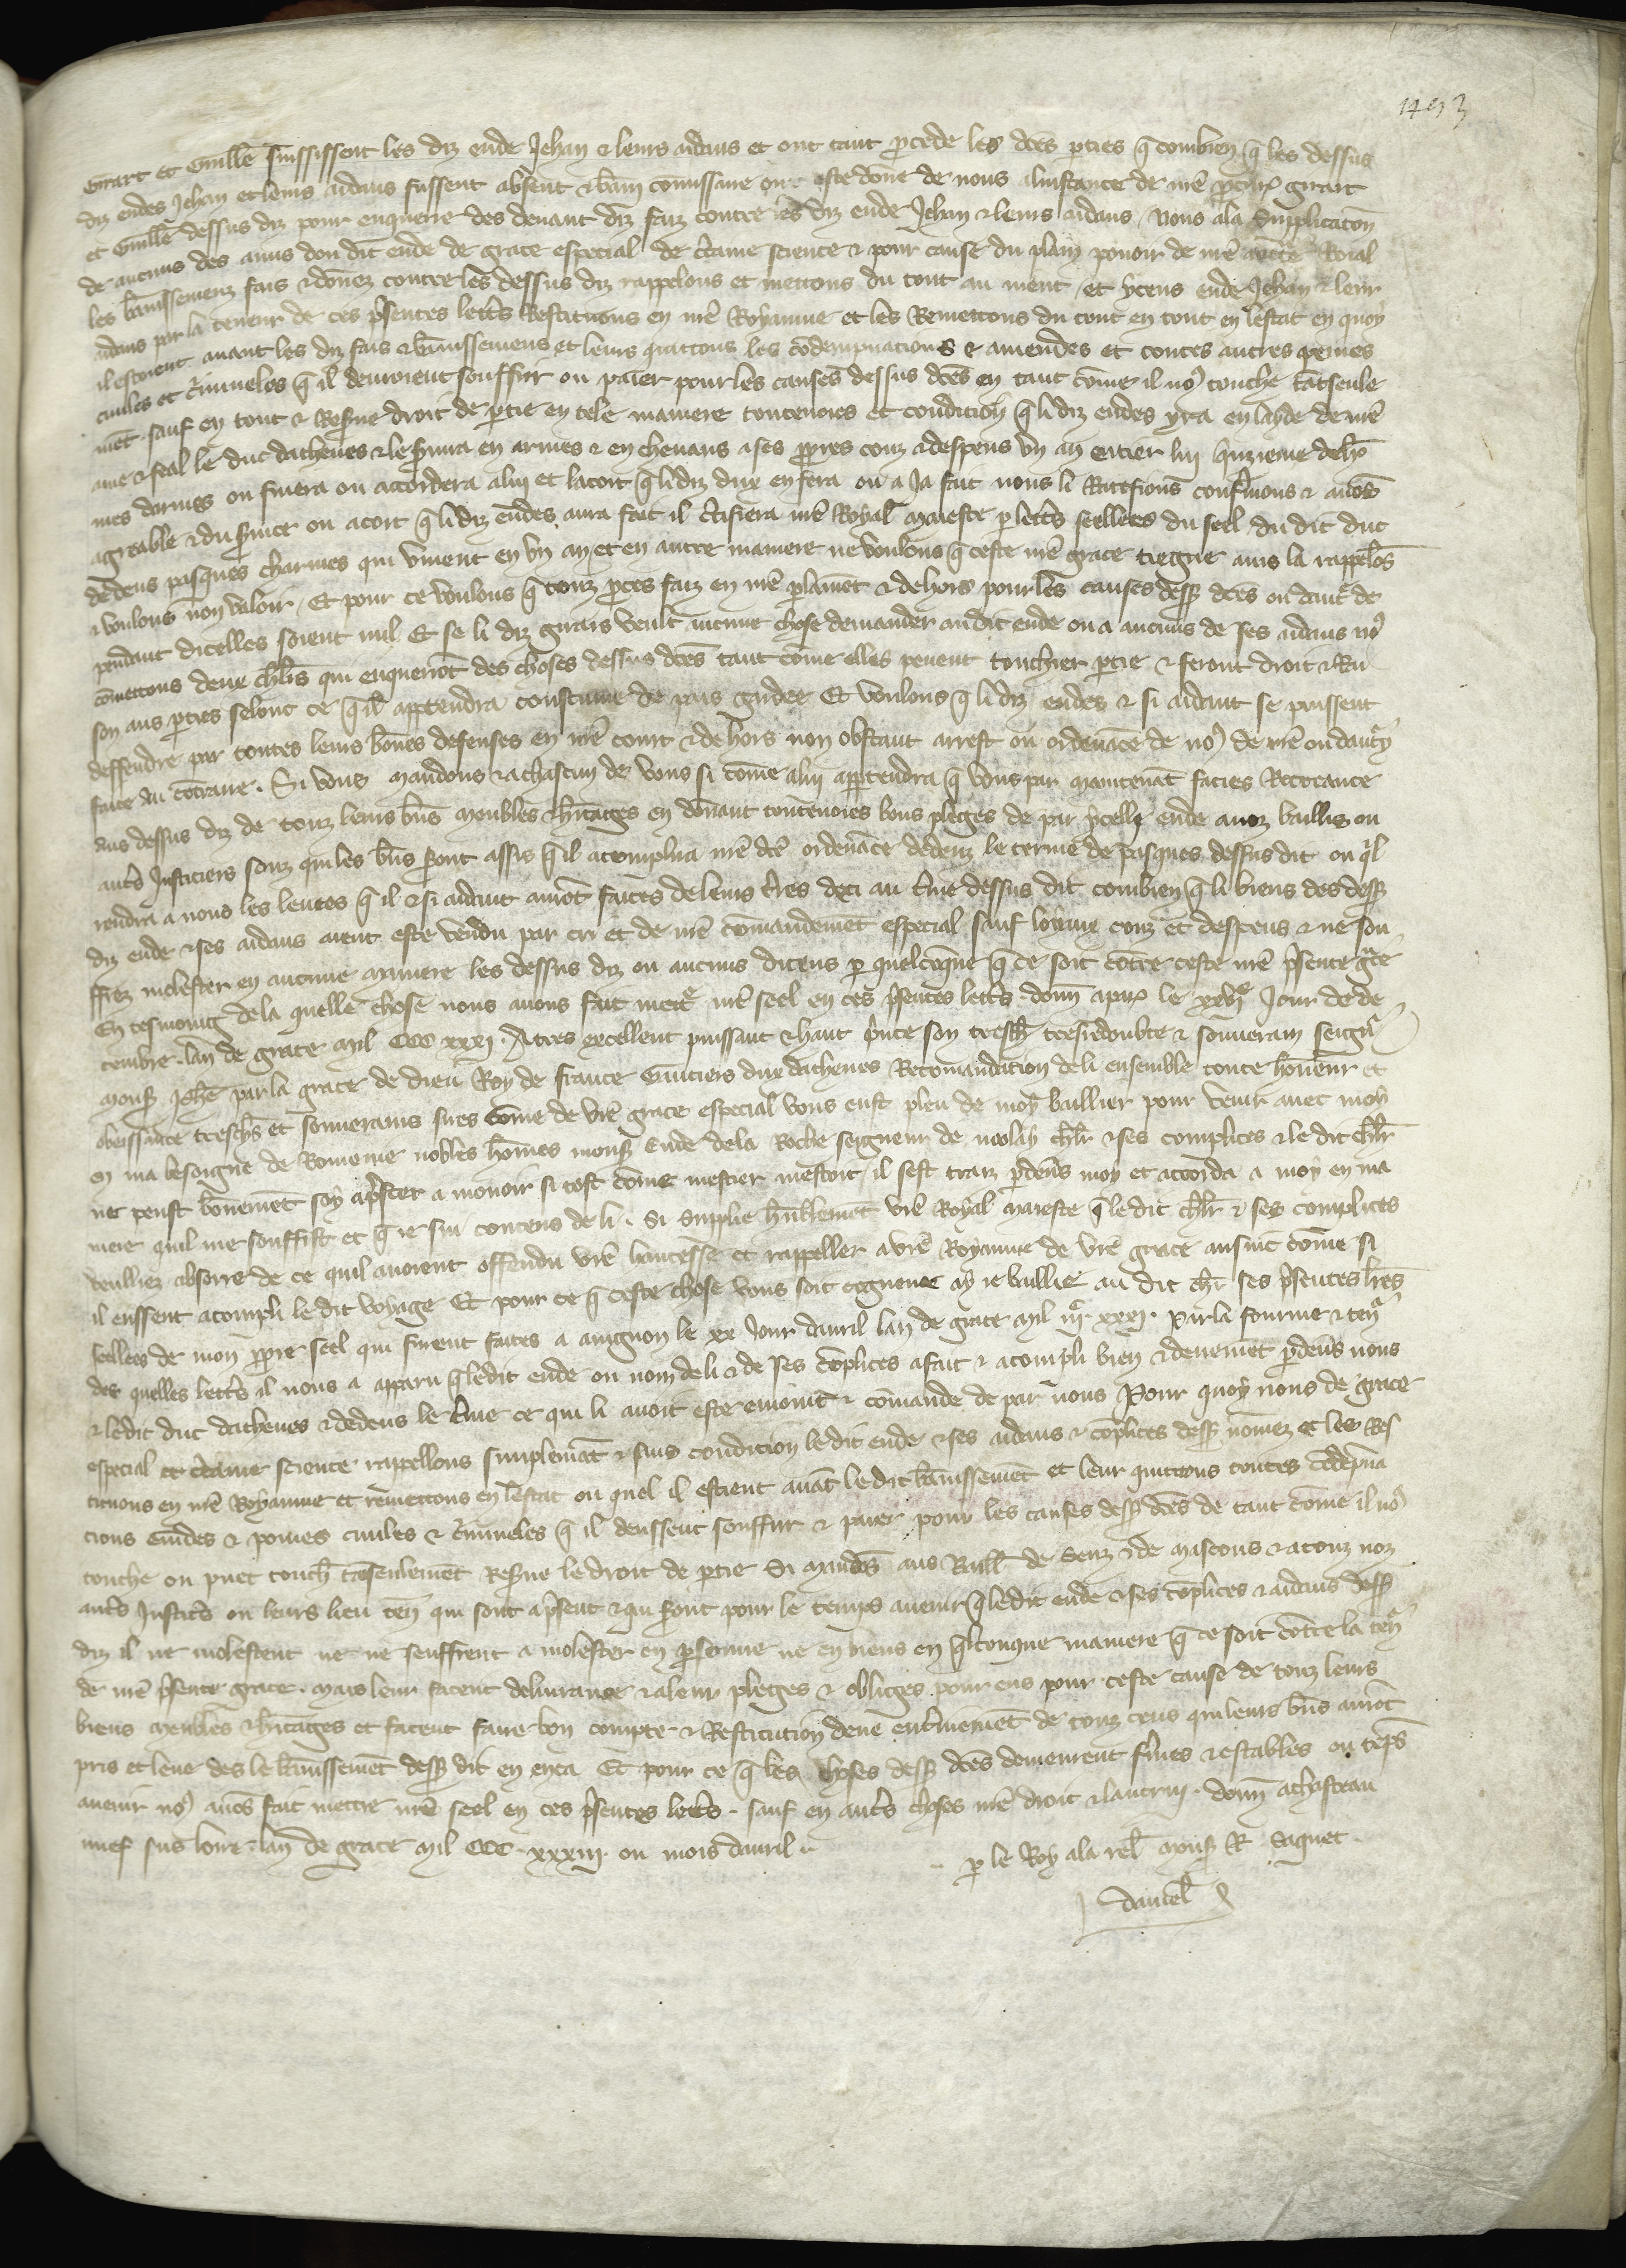 1493
Girart et Guillē suissisent les diz eude Jehan & leurs aidans et ont tant procede les dc̄es parties q̄ combien q̄ les dessus
diz eudes Jehan et leurs aidans fussent absent & bani commissaire ont este done de nous a linstance de nr̄e procur̄ girart
et Guillē dessus diz pour enquerre des devant diz faiz contre les diz eude Jehan & leurs aidans / Nous a la Supplicatōn
de aucuns des amis dou dit eude de grace especial de c̄taine science & pour cause du plain povoir de nr̄e auct̄te Roial
les banissemenz fais & donez contre les dessus diz rappelons et mettons du tout au nient / et yceus eude Jehan & leur
aidans par la teneur de ces p̄sentes lettr̄s Restituons en nr̄e Royaume et les Remettons du tout en tout en lestat en quoy
il estoient avant les diz fais & banissemens et leurs quittons les cōdempnacions & amendes et toutes autres peines
civiles et c̄iminelos q̄ il devroient souffrir ou paier pour les causes dessus dc̄es en tant cōme il no9 touche tātseule
mēt sauf en tout & Reserve droit de partie en tele maniere toutevoies et condicion q̄ li diz eudes yra en layde de nr̄e
ame & feal le duc dathenes & le servira en armes & en chevaus a ses propres couz & despens vn an entier lui quizieme de hō
mes darmes ou finera ou accordera a lui et lacort q̄ li diz dux en fera ou a ja fait nous li Ratefions confermons & avōs
agreable & du service ou acort q̄ li diz eudes aura fait il c̄tifiera nr̄e Royal Maieste par lettr̄s seellees du seel du dit duc
dedens pasques charnies qui vinent en vn an et en autre maniere ne voulons q̄ ceste nr̄e grace tiegne ains la rappelōs
& voulons non valoir / Et pour ce voulons q̄ touz proces faiz en nr̄e parlament & dehors pour les causes dess9 dc̄es ou dautr̄ de
pendant dicelles soient nul Et se li diz girars veult aucune chose demander audit eude ou a aucuns de ses aidans no9
cōmettons deux chl̄rs qui enquerrōt des choses dessus dc̄es tant cōme elles pevent touchier partie & feront droit & Rai
son aus parties selonc ce q̄ il appartendra coustume de pais gardee Et voulons q̄ li diz eudes & si aidant se puissent
deffendre par toutes leurs bōnes defenses en nr̄e court & dehors non obstant arrest ou ordenāce de no9 de nr̄e ou dautruy
faite au cōtraire . Si vous mandons & a chascun de vous si cōme a lui appartendra q̄ vous par maintenāt facies Recreance
aus dessus diz de touz leurs bn̄s moubles & h̄itages en dōnant toutevoies bons pleges de par ycelli eude a noz baillis ou
autr̄s Justiciers souz qui les bn̄s seront assis q̄ il acomplira nr̄e dc̄e ordenāce dedenz le terme de pasques dessus dit ou q̄l
rendra a nous les levees q̄ il & si aidant aurōt faites de leurs t̄res deci au t̄me dessus dit combien q̄ li biens des dess9
diz eude & ses aidans aient este vendu par cri et de nr̄e cōmandemēt especial sauf loyaux couz et despens & ne sou
ffrez molester en aucune maniere les dessus diz ou aucuns diceus par quelcoque q̄ ce soit cōtre ceste nr̄e p̄sente gr̄ce
En tesmoing de la quelle chose nous avons fait mettr̄ nr̄e seel en ces p̄sentes lettr̄s . donn̄ a par̄ le xxvije Jour de de
cembre . lan de grace mil CCC xxxj . A tres excellent puissant & haut p̄nce son tresch̄r tresredoubte & souverain seignr̄
mons9 Jeh̄n par la grace de dieu Roy de france Gautiers dux dathenes Recomandation de li ensemble toute hōneur et
obeissance treschr̄s et souverains sires cōme de vr̄e grace especial vous eust pleu de moy baillier pour venir avec moy
en ma besoigne de Romenie nobles hōmes mons9 Eude de la Roche seigneur de nolay chl̄r & ses complices & le dit chl̄r
ne peust bonnemēt soy aprester a mouvoir si tost cōme mestier mestoit / il sest traiz par devs moy et accorda a moy en ma
niere quil me souffist et q̄ ie sui contens de li . Si Supplie hūblemēt vr̄e Royal Maieste q̄ le dit chl̄r & ses complices
veulliez absorre de ce quil auroient offendu vr̄e hautesse et rappeller a vr̄e Royaume de vr̄e grace ausint cōme si
il eussent acompli ledit voyage Et pour ce q̄ ceste chose vous soit cogneue ay ie baillie au dit chl̄r ses p̄sentes lr̄es
seellees de mon propre seel qui furent faites a avignon le xx Jour davril lan de grace mil iijc xxxj . Par la fourme & ten̄r
des quelles lettr̄s il nous a apparu q̄ ledit eude ou nom de li & de ses cōplices a fait & acompli bien & deuemēt par devs nous
& ledit duc dathenes & dedens le t̄me ce qui li avoit este enioint & cōmande de par nous Pour quoy nous de grace
especial et c̄taine science rappellons simplemāt & sans condicion ledit eude & ses aidans & cōplices dess9 nōmez et les Res
tituons en nr̄e Royaume et remettons en lestat ou quel il estient avāt le dit banissemēt et leur quittons toutes cōdēpna
cions em̄des & poines civiles & c̄iminelos q̄ il deussent souffrir & paier pour les causes dess9 dc̄es de tant cōme il no9
touche ou puet touch̄r tāseulement Reserve le droit de partie Si mandōs aus Baill̄ de Senz & de Mascons & a touz noz
autr̄s Justic̄rs ou leurs lieu ten̄ qui sont a p̄sent & qui seront pour le temps avenir q̄ ledit eude & ses cōplices & aidans dess9
diz il ne molestent ne ne seuffrent a molester en personne ne en biens en q̄lconque maniere q̄ ce soit cōtre la ten̄r
de nr̄e p̄sente grace . mais leur facent delivrance & a leur pleges & obliges pour eus pour ceste cause de touz leurs
biens meubles & h̄itages et facent faire bon compte & Restitution deue ent̄inemēt de touz ceus qui leurs bn̄s aurōt
pris et leve des le banissemēt dess9 dit en enca Et pour ce q̄ les choses dess9 dc̄es demeurent f̄mes & estables ou tēps
avenir no9 avōs fait mettre nr̄e seel en ces p̄sentes lettr̄s . sauf en autr̄s choses nr̄e droit & lautrui . donn̄ a chasteau
nuef sus loire . lan de grace mil CCC . xxxiij . ou mois davril ..
.. par le Roy a la rel̄ mons9 R Saquet .
daniel